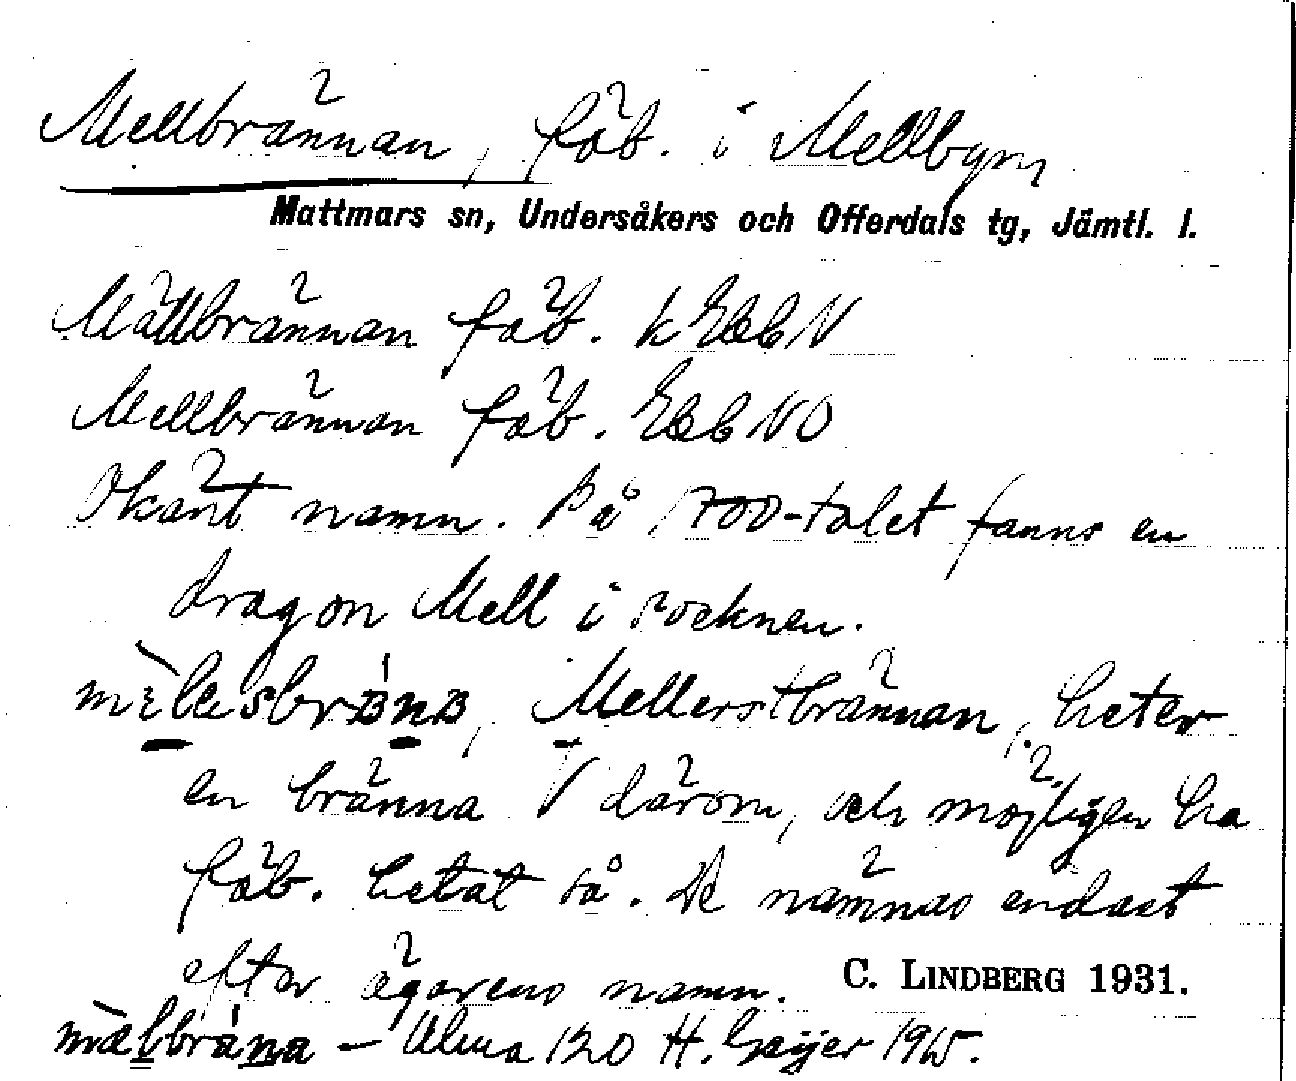 Mellbrännan, fäb. i Mellbyn,
Mattmars sn, Undersåkers och Offerdals tg, Jämtl. l.
Mällbrännan fäb. k EbbV
Mellbrännan fäb. EbbNO
Okänt namn. På 1700-talet fanns en
dragon Mell i socknen.
Mellerstbrännan, heter
en bränna V därom, och möjligen ha
fäb. hetat så. De nämnas endast
efter ägarens namn. C. LINDBERG 1931.
— Ulma 120 H. Geijer 1915.